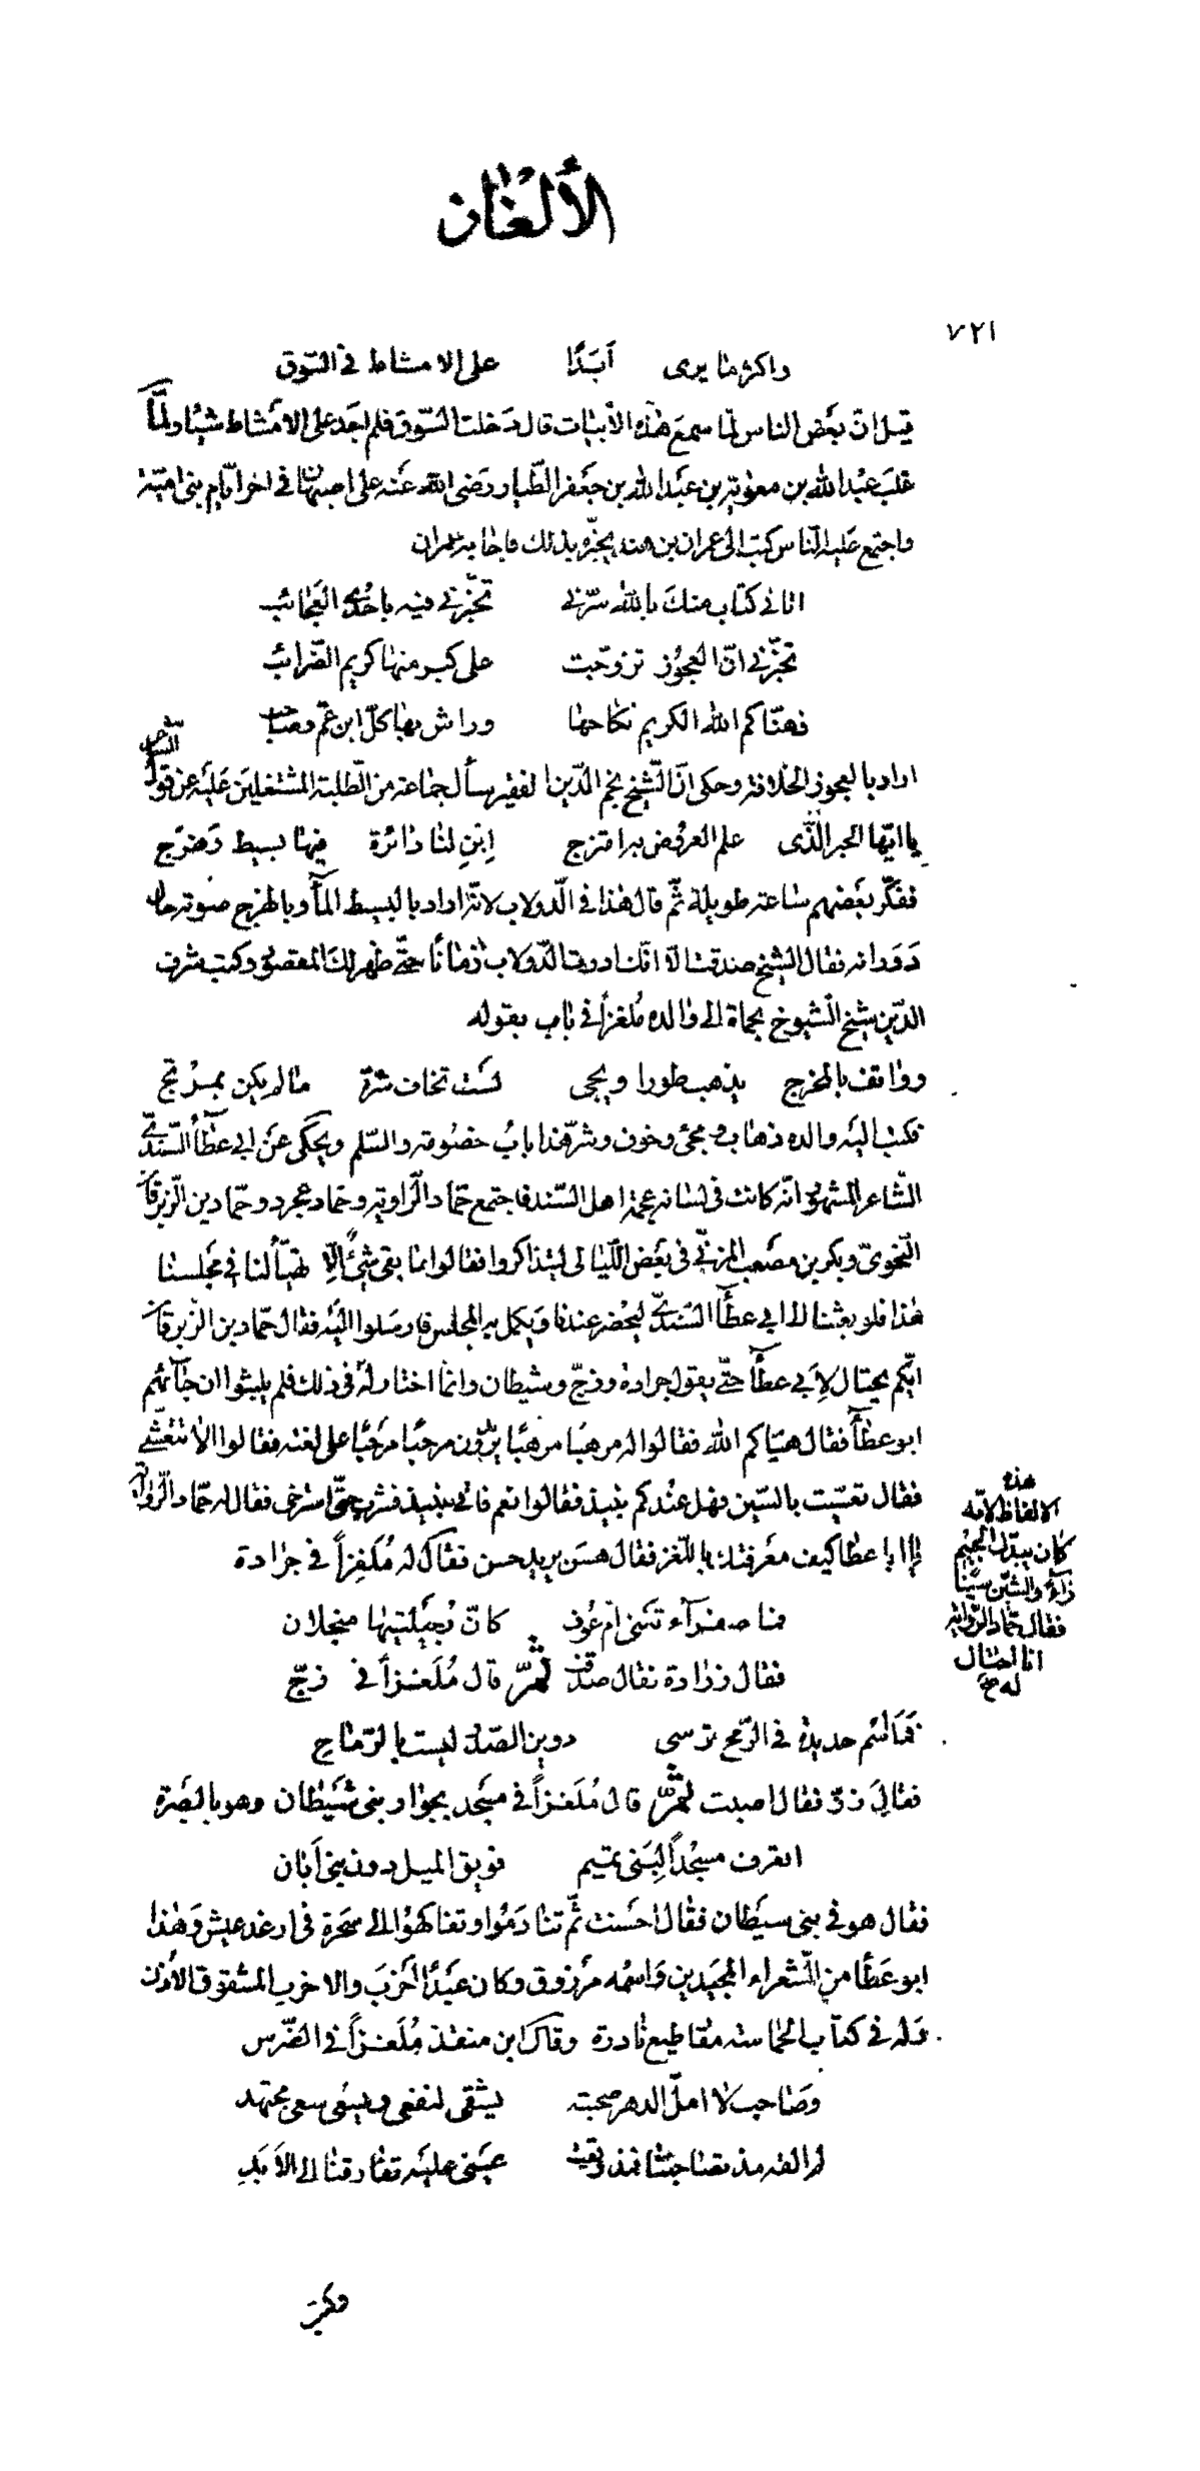 الألغاز
٧٢١
واكثر ما يرى أبدًا على الامشاط في السّوق
قيل انّ بعض الناس لمّا سمع هذه الأبيات قال دخلت السّوق فلم اجد على الامشاط شيئا ولمّا
غلب عبد الله بن معوية بن عبد الله بن جعفر الطّيار رضى الله عنه على اصبهان في اخر ايّام بنى اميّة
واجتمع عليه النّاس كتب الى عمران بن هند يخبّره بذلك فاجابه عمران
اتانى كتاب منك بالله سرّنى تخبّرنى فيه باحدى العجائب
تخبّرنى انّ العجوز تزوّجت على كبر منها كريم الضّرائب
فهنّاكم الله الكريم نكاحها وراش بها كلّ ابن عمّ وصاحب
اراد بالعجوز الخلافة وحكى انّ الشّيخ نجم الدّين الفقير سأل جماعة من الطّلبة المشتغلين عليه عن قول الشاعر
يا ايّها الحبر الّذى علم العروض به امتزج ابن لنا دائرة فيها بسيط وهزج
ففكّر بعضهم ساعة طويلة ثمّ قال هذا في الدّولاب لانّه اراد بالبسيط المآء وبالهزج صوته حال
دورانه فقال الشيخ صدقت الّا انّك ادرت الدّولاب زمانًا حتّى ظهر لك المقصود وكتب شرف
الدّين شيخ الشيوخ بحماة الى والده مُلغزًا في باب بقوله
وواقف بالمخرج يذهب طورا ويجى لست تخاف شرّه ما لم يكن بمرتج
فكتب اليه والده ذهاب ومجئ وخوف وشرّ هذا باب خصومة والسّلم ويحكى عن ابى عطآء السّندىّ
الشّاعر المشهور انّه كانت في لسانه عجمة اهل السّند فاجتمع حمّاد الرّاوية وحماد عجرد وحمّاد بن الزّبرقان
النّحوىّ وبكر بن مصعب المزنىّ في بعض اللّيالى ليتذاكروا فقالوا ما بقى شئٌ الّا تهيّأ لنا في مجلسنا
هذا فلو بعثنا الى ابى عطآء السّندىّ ليحضر عندنا ويكمل به المجلس فارسلوا اليه فقال حمّاد بن الزّبرقان
ايّكم يحتال لابى عطآء حتّى يقول جرادة وزجّ وشيطان وانّما اختار له في ذلك فلم يلبثوا ان جآئهم
ابو عطآء فقال هيّاكم الله فقالوا له مرهبا مرهبًا يريدون مرحبًا مرحبًا على لغته فقالوا الا تتعشّى
فقال تعسّيت بالسّين فهل عندكم نبيذ فقالوا نعم فاتى بنبيذ فشرب حتّى استرخى فقال له حمّاد الرّاوية
يا ابا عطا كيف معرفتك باللّغز فقال هسن يريد حسن فقال له مُلغِزاً في جرادة
هذه
الالفاظ لانّه
كان يبدّل الجيم
زاء والشين سينا
فقال حمّاد الرّاوية
انا احتال
له
فما صفرآء تكنى امّ عوف كانّ رُجيلتيها منجلان
فقال زرادة فقال صدقت ثمّ قال مُلغزاً في زجّ
فما اسم حديدة في الرّمح ترسى دوين الصّدر ليست بالرّماح
فقال ززّ فقال اصبت ثمّ قال مُلغزاً في مسجد بجوار بنى شيطان وهو بالبصرة
اتعرف مسجداً لبنى تميم فويق الميل دون بنى أبان
فقال هو في بنى سيطان فقال احسنت ثمّ تنادموا وتفاكهوا الى سحرة في ارغد عيش وهذا
ابو عطآء من الشّعراء المجيدين واسمه مرزوق وكان عبدًا اخرب والاخرب المشقوق الأذن
وله في كتاب الحماسة مقاطيع نادرة وقال ابن منقذ مُلغزاً في الضّرس
وصاحب لا املّ الدهر صحبته يشقى لنفعى ويسعى سعى مجتهد
لم القه مذ تصاحبنا فمذ وقعت عينى عليه تفارقنا الى الأبد